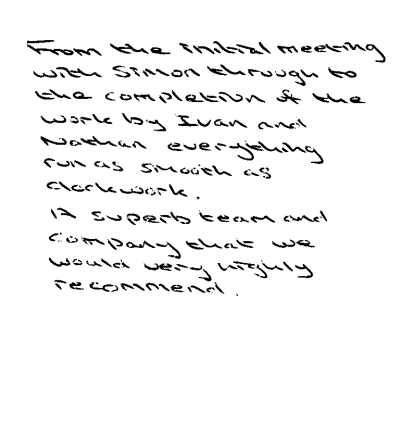 From the initial meeting
with Simon through to
the completion of the
work by Ivan and
Nathan everything
run as smooth as
clockwork.
A superb team and
company that we
would very highly
recommend.